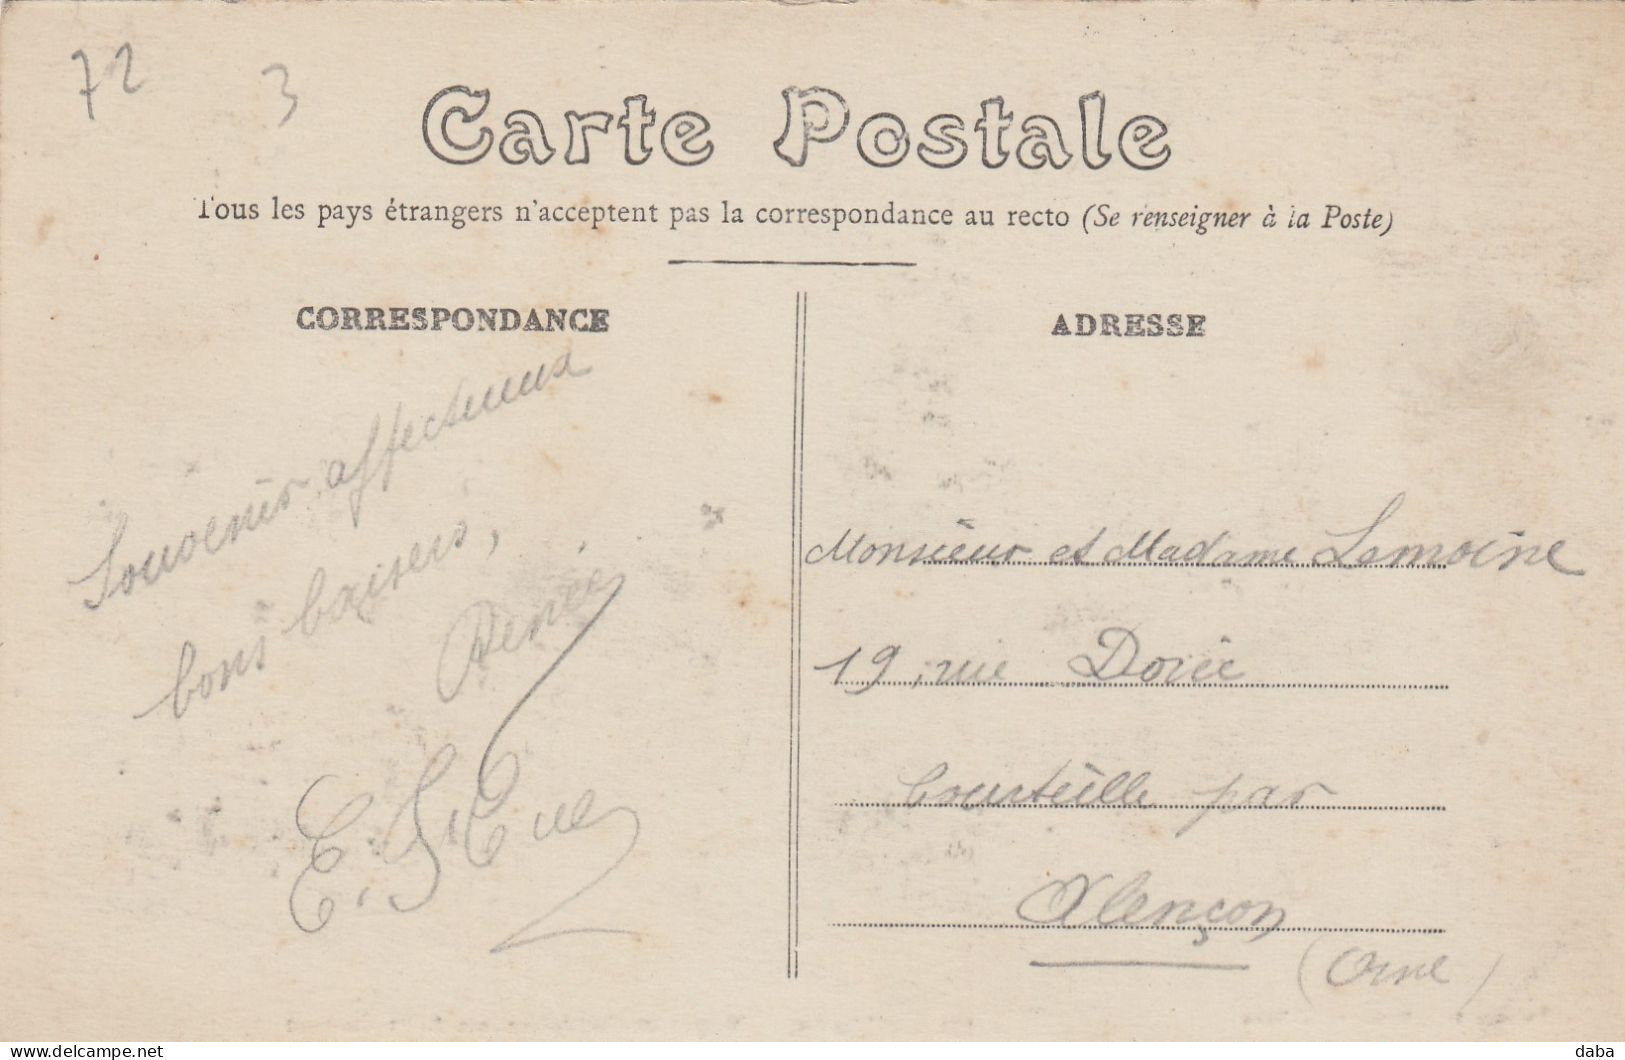 72 3
Carte Postale
Tous les pays étrangers n'acceptent pas la correspondance au recto (Se renseigner à la Poste)
CORRESPONDANCE
Souvenir affectueux
bons baisers,
Renée
ADRESSE
Monsieur et Madame Lemoine
19, rue Dorée
Courteille par
Alençon
(Orne)
Delcampe.net
daba